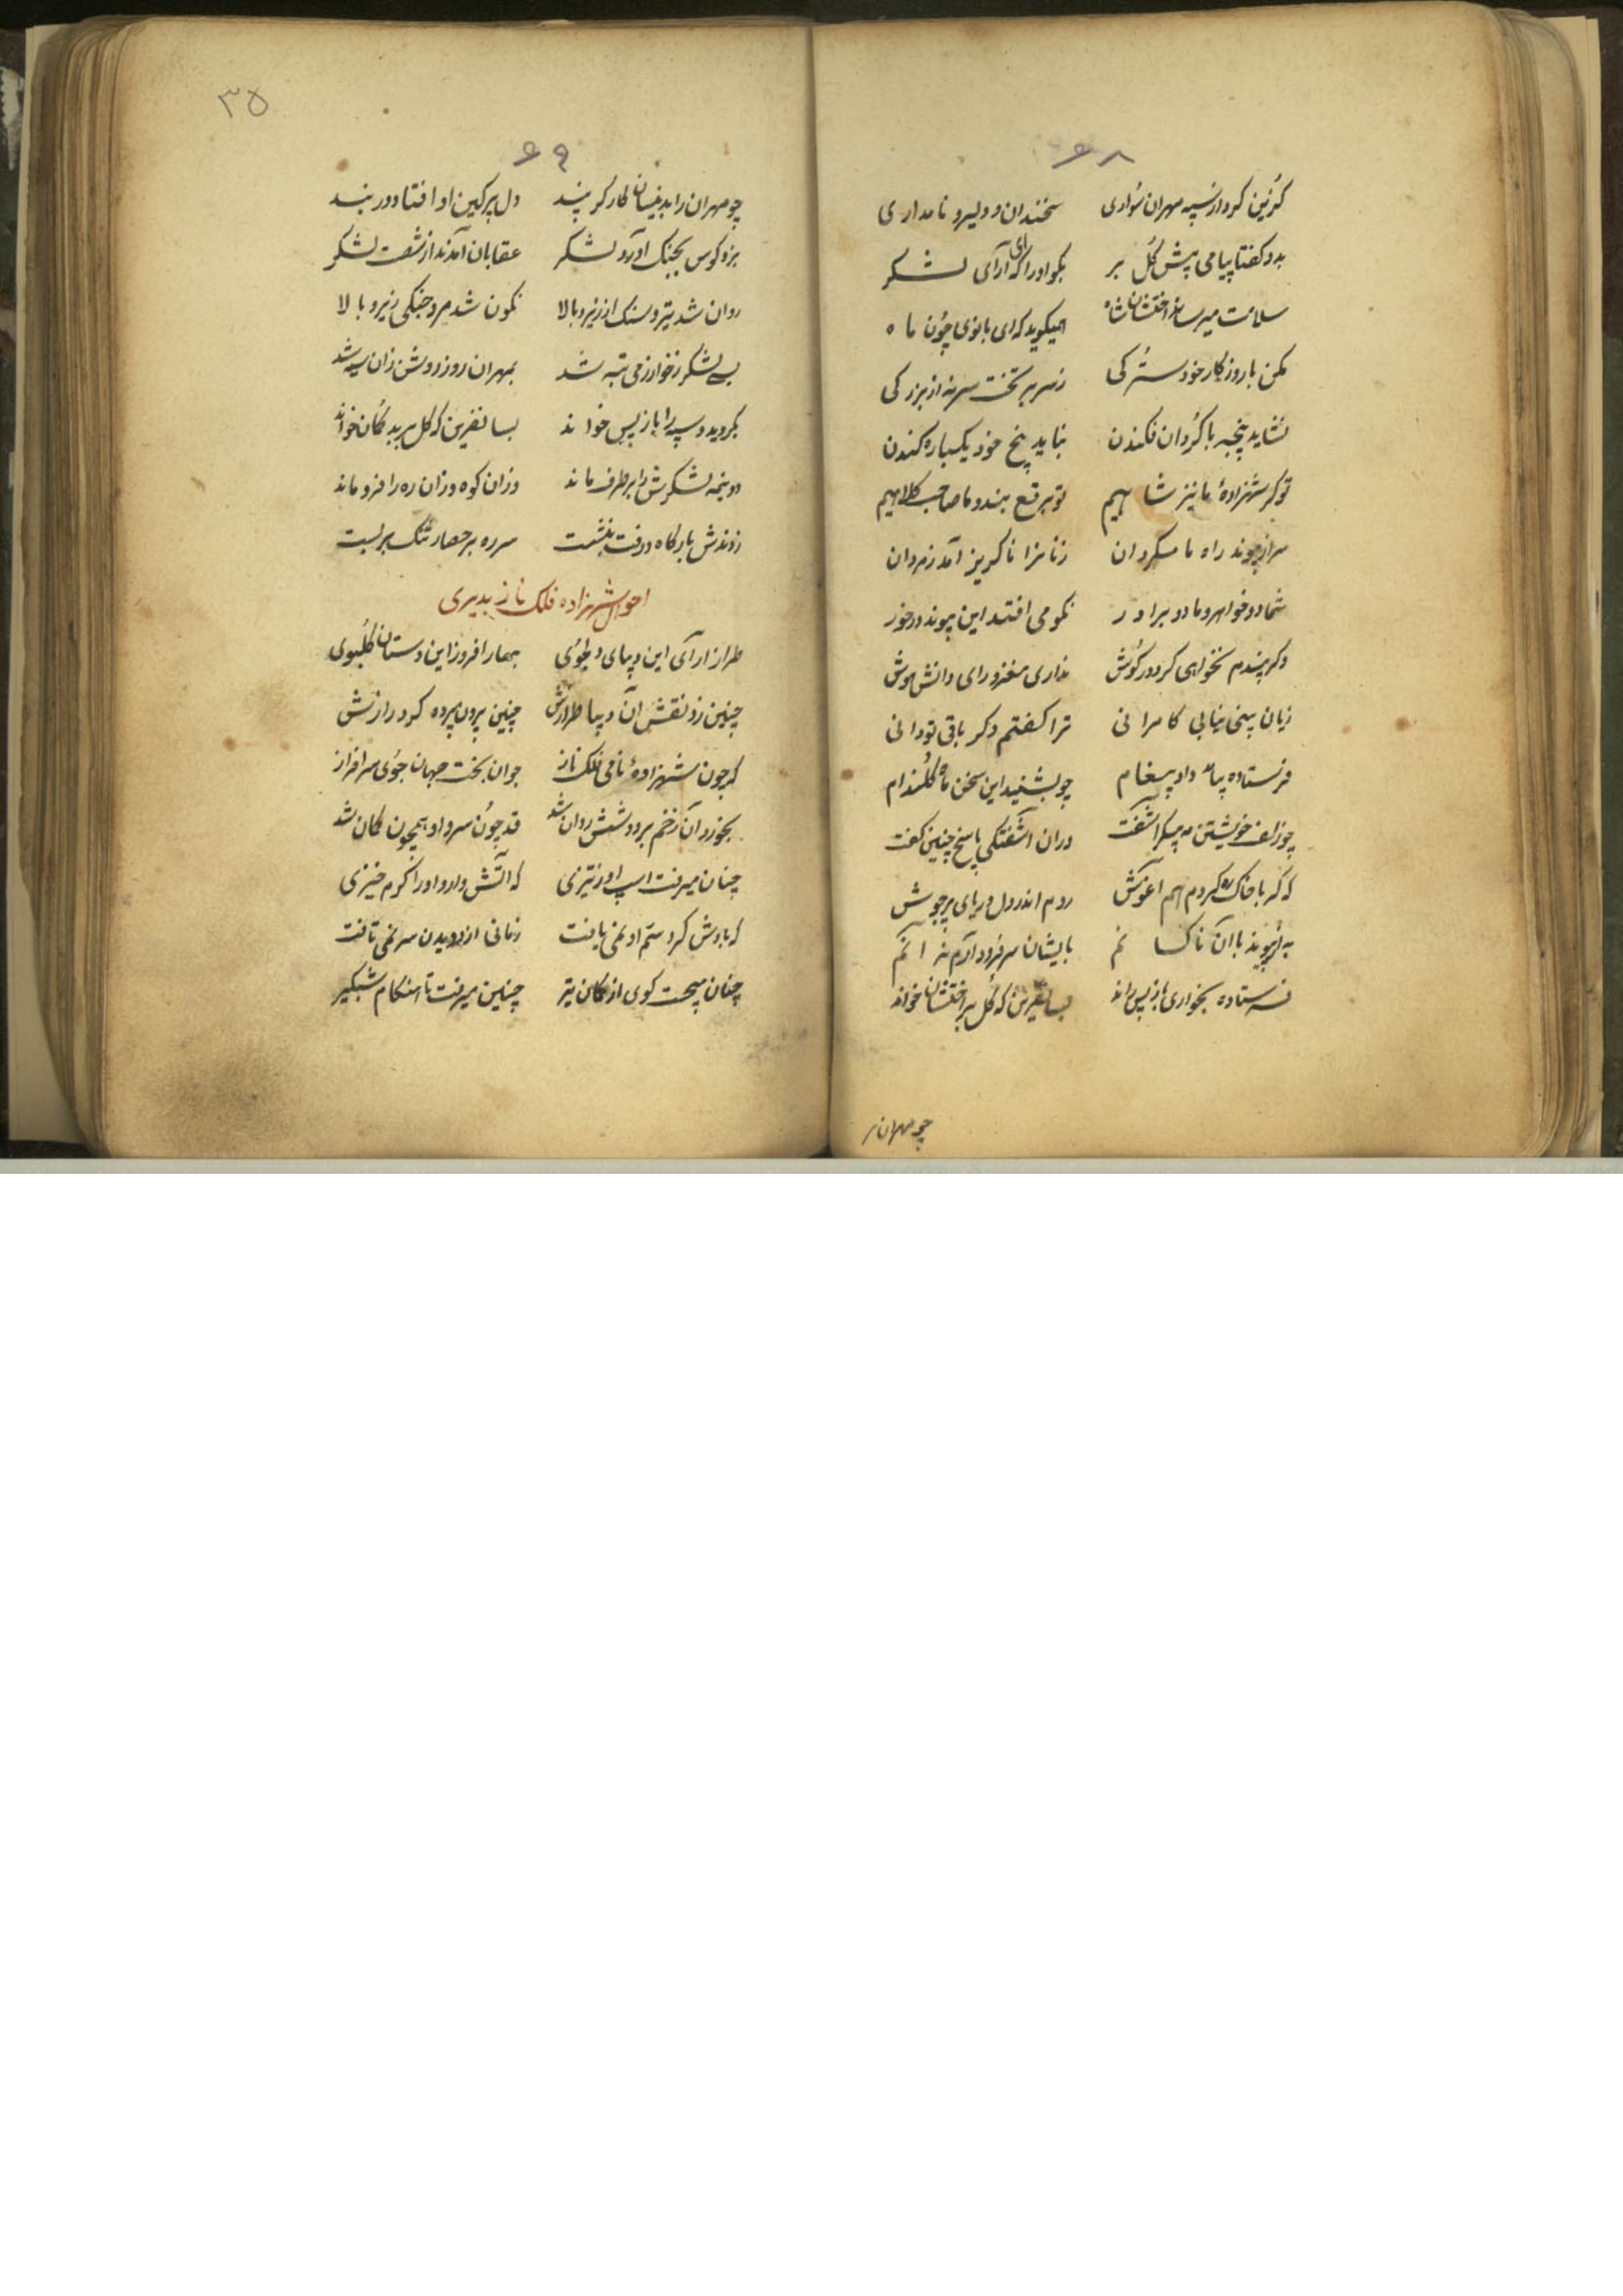 ۶۸
گزین کرد از سپه مهران سواری سخندان و دلیر و نامداری
بدو گفتا پیامی پیش گل بر بگو او را که ای آرای لشکر
سلامت میرساند اختشان شاه همیگوید که ای بانوی چون ماه
مکن با روزگار خود سترکی ز سر بر تخت سر نه از بزرکی
نشاید پنجه با گردان فکندن نباید بیخ خود یکباره کندن
تو گر شهزادهٔ ما نیز شاهیم تو برقع بند و ما صاحب کلاهیم
سر از پیوند راه ما مگردان زنانرا ناگریز آمد ز مردان
شما دو خواهر و ما دو برادر نکو می افتد این پیوند در خور
وگر پندم نخواهی کرد در گوش نداری مغز و رای و دانش و هوش
زیان بینی نیابی کامرانی ترا گفتم دگر باقی تو دانی
فرستاده بیامد داد پیغام چو بشنید این سخن ماه گلندام
چو زلف خویشتن مه پیکر آشفت در آن آشفتگی پاسخ چنین گفت
که گر با خاک ره گردم هم آغوش روم اندر دل دریای پر جوش
به از پیوند با آن ناکسانم بایشان سر فرود آرم نه آنم
فرستاده بخواری باز پس راند بسا نفرین که گل بر اختشان خواند
چو مهران را
۳۵
۶۹
چو مهران را بدینسان کار گر بند دل پر کین او افتاد در بند
بزد کوس بجنگ آورد لشکر عقابان آمدند از شصت لشکر
روان شد تیر و سنگ از زیر و بالا نگون شد مرد جنگی زیر و بالا
بسی لشکر ز خوارزمی تبه شد بمهران روز روشن زان سیه شد
بگردید و سپه را باز پس خواند بسا نفرین که گل بر بدگمان خواند
دو نیمه لشکرش را بر طرف ماند وزان کوه وزان ره را فرو ماند
زدندش بارگاه و رفت بنشست سر ره بر حصار تنگ بر بست
احوال شهزاده فلک ناز بدیری
طراز آرای این دیبای دلجوی بهار افروز این دستان گلبوی
چنین زد نقش آن دیبا طرازش چنین بیرون پرده کرد رازش
که چون شهزادهٔ نامی فلک ناز جوان بخت جهان جوی سرافراز
بخورد آن زخم بر دوشش روان شد قد چون سرو او همچون کمان شد
چنان میرفت اسب او ز تیزی که آتش دارد او را گرم خیزی
که بادش گرد ستم او نمی یافت زمانی از دویدن سر نمی تافت
چنان میجست گوی از کمان تیر چنین میرفت تا هنگام شبگیر